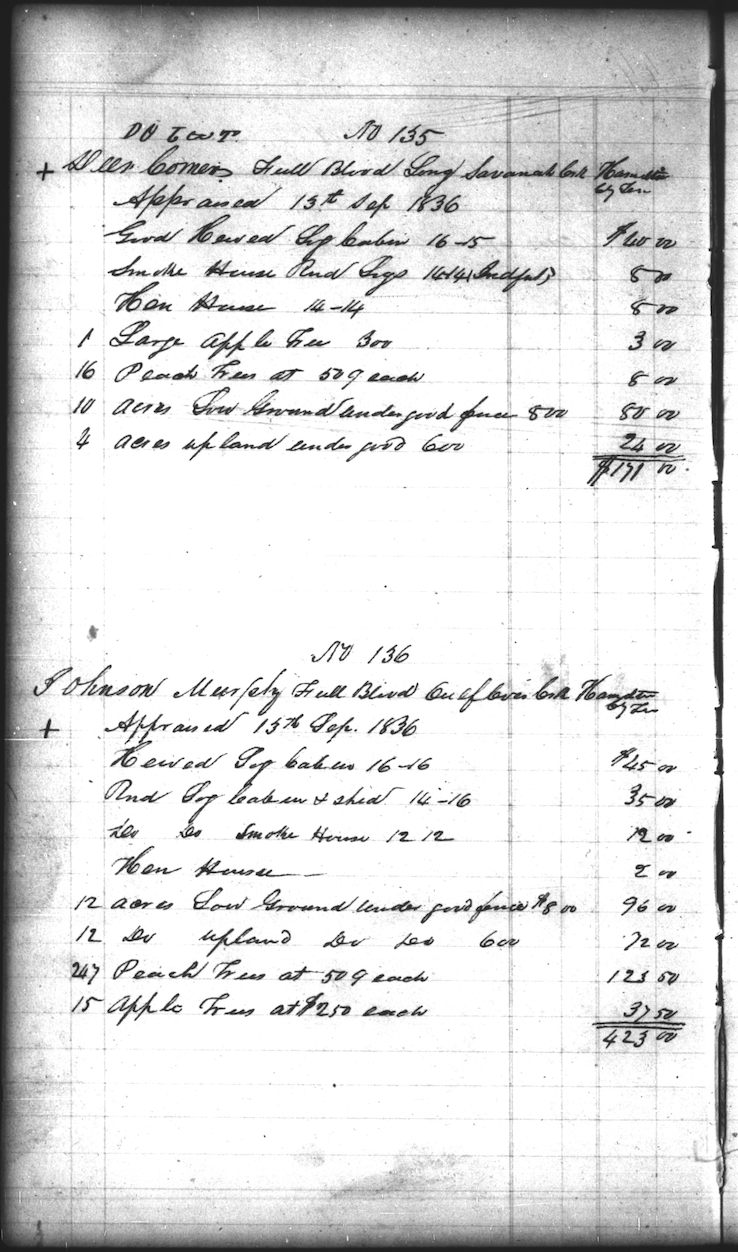 No 135
+ Deer Comer Full Blood Long Savanah Crk Hamilton
Cty Ten
Appraised 13th Sep 1836
Good Hewed Log Cabin 16-15 $40 00
Smoke House Rnd Logs 14-14 8 00
Hen House 14-14 8 00
1 Large Apple Tree 300 3 00
16 Peach Trees at 50 each 8 00
10 acres Low Ground under good fence 800 80 00
4 acres upland under good 600 24 00
$171 00
No 136
Johnson Murphy Full Blood Crk Hamilton
Cty Ten
+ Appraised 13th Sep. 1836
Hewed Log Cabin 16-16 $45 00
Rnd Log Cabin & shed 14-16 35 00
Do Do Smoke House 12 12 12 00
Hen House — 2 00
12 acres Low Ground under good fence $8 00 96 00
12 Do upland Do Do 600 72 00
247 Peach Trees at 50 each 123 50
15 Apple Trees at $250 each 37 50
423 00